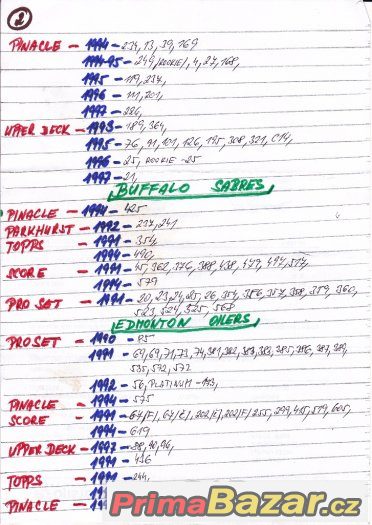 2
PINACLE - 1994 - 234, 13, 39, 169
1994-95 - 249 (ROOKIE), 4, 27, 168,
1995 - 119, 237,
1996 - 111, 201,
1997 - 226,
UPPER DECK - 1993 - 189, 364,
1995 - 76, 91, 101, 126, 195, 308, 321, C14,
1996 - 25, ROOKIE - 25
1997 - 21,
BUFFALO SABRES
PINACLE - 1994 - 425
PARKHURST - 1992 - 237, 241
TOPPS - 1991 - 354,
1994 - 490,
SCORE - 1991 - 45, 362, 376, 388, 438, 479, 497, 514,
1994 - 579
PRO SET - 1991 - 20, 23, 24, 25, 26, 354, 356, 357, 358, 359, 360,
523, 524, 525, 568
EDMONTON OILERS
PROSET - 1990 - 85,
1991 - 69, 69, 71, 73, 74, 381, 382, 383, 383, 385, 386, 387, 389,
535, 592, 572
1992 - 56, PLATINUM - 193,
PINACLE - 1994 - 575
SCORE - 1991 - 64/F/, 64/E/, 202/E/, 202/F/ 255, 299, 415, 519, 605,
1994 - 619
UPPER DECK - 1997 - 38, 40, 96,
1991 - 436
TOPPS - 1991 - 244,
PINACLE -
PrimaBazar.cz